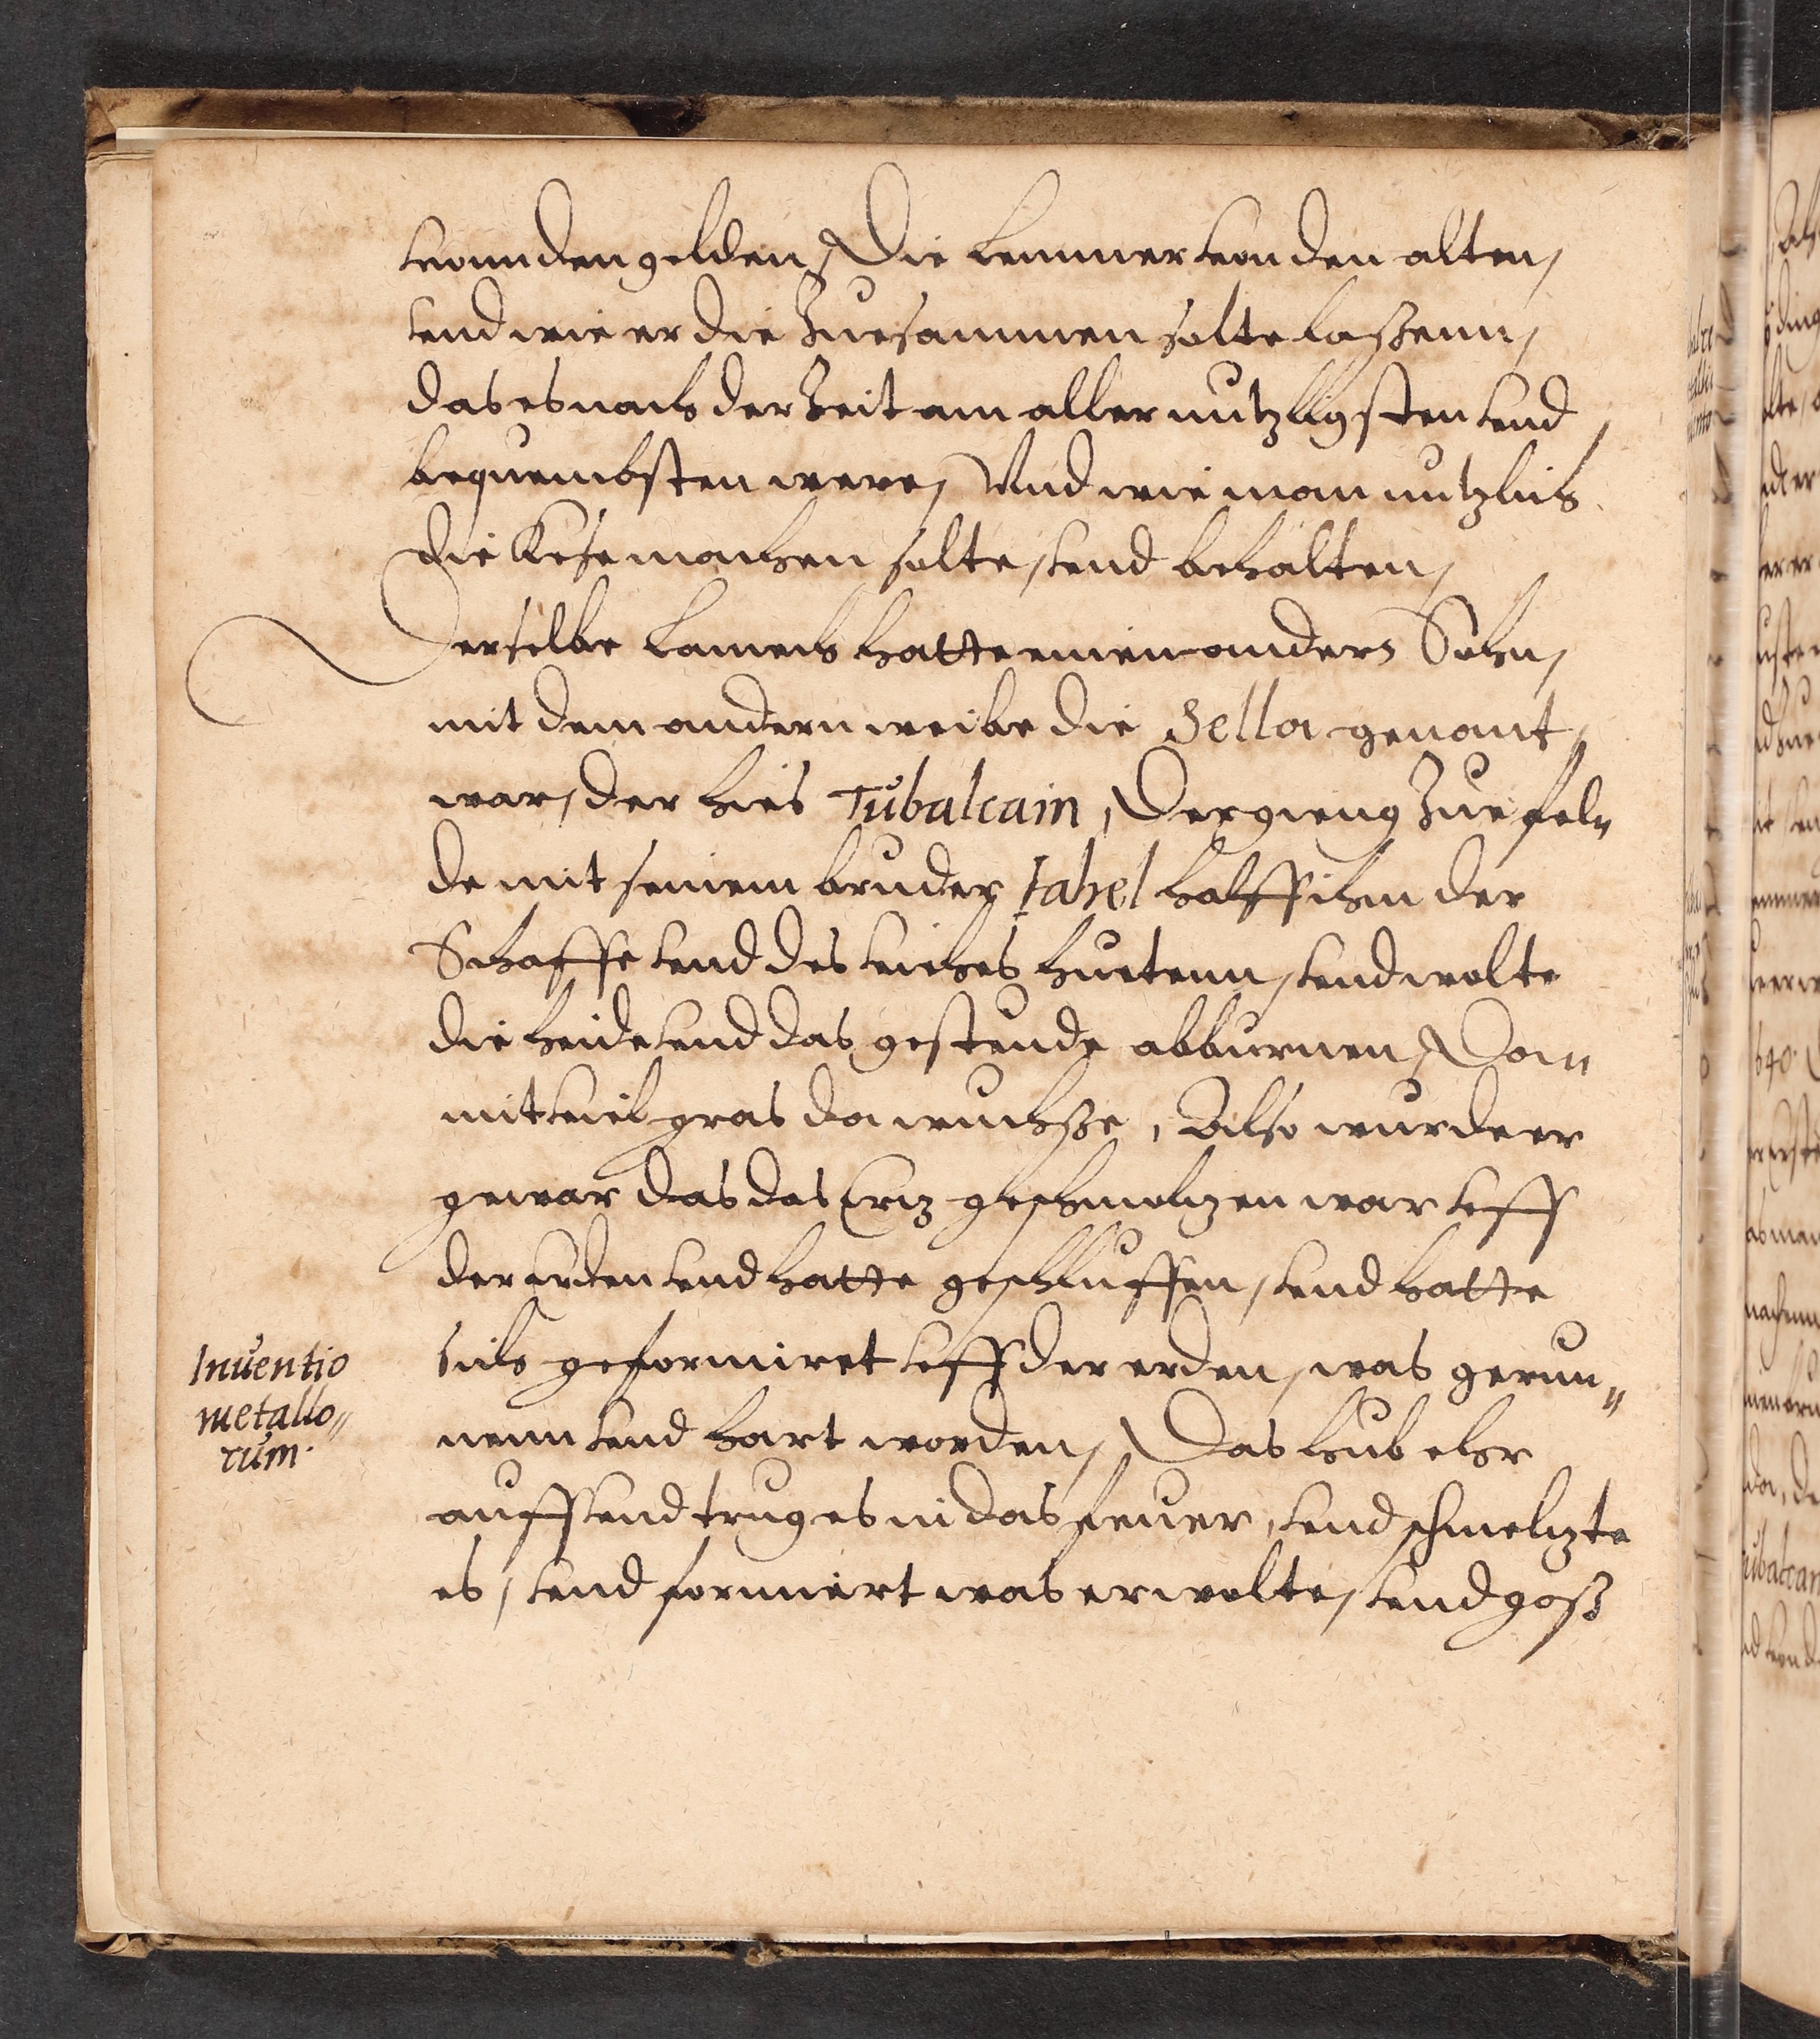 vonn den gelden, Die Lemmer von den alten,
vnd wie er die Zuesammen solte laßenn,
das es nach der Zeit am aller nutzligsten vnd
bequembsten were, Vnd wie man nutzlich
die Kese machen solte, vnd behalten,
Derselbe Lamech hatte einen anders Sohn,
mit dem andern weibe die Sella genant,
war, der hies Tubalcain, Der gieng Zue fel„
de mit seinem bruder Jabel halff ihm der
Schaffe vnd des viehes huetenn, vnd wolte
die heide vnd das gestende abburnen, Da„
mit viel gras da wuchsze, Also wurde er
gewar das das Ertz geschmoltzen war vff
der erden vnd hatte geschluffen, vnd hatte
sich geformiret vff der erden, was gerun„
nenn vnd hart worden, Das hub ehr
auff vnd trug es in das feuer, vnd schmeltzte
es, vnd formiert was er wolte, vnd goß
Inuentio
metallo„
rum.